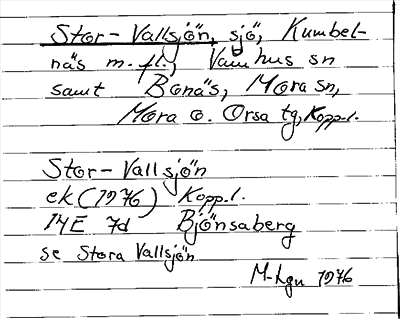 Stor-Vallsjön, sjö, Kumbel-
näs m.fl., Våmhus sn
samt Bonäs, Mora sn,
Mora o. Orsa tg, Kopp.l.
Stor-Vallsjön
ek (1976) Kopp.l.
14E 7d Björnsaberg
se Stora Vallsjön
M-Lgn 1976